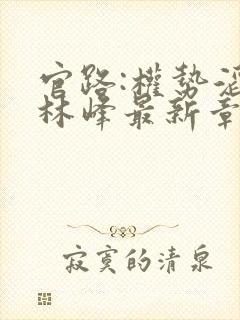 官路:權勢滔
林峰最新章
寂寞的清泉